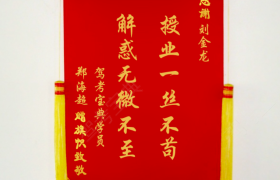 感谢刘金龙
授业一丝不苟
解惑无微不至
驾考宝典学员
郑海超 赠旗帜致敬